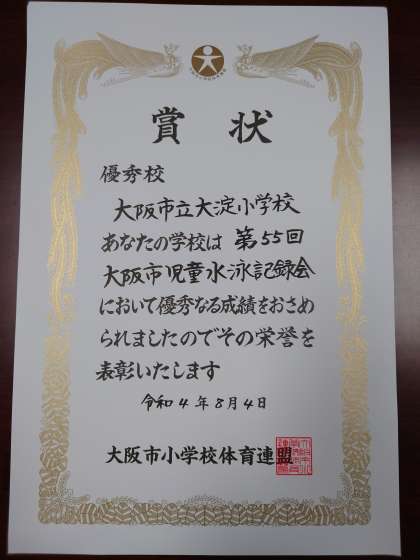 賞状
優秀校
大阪市立大淀小学校
あなたの学校は 第55回
大阪市児童水泳記録会
において優秀なる成績をおさめ
られましたのでその栄誉を
表彰いたします
令和4年8月4日
大阪市小学校体育連盟